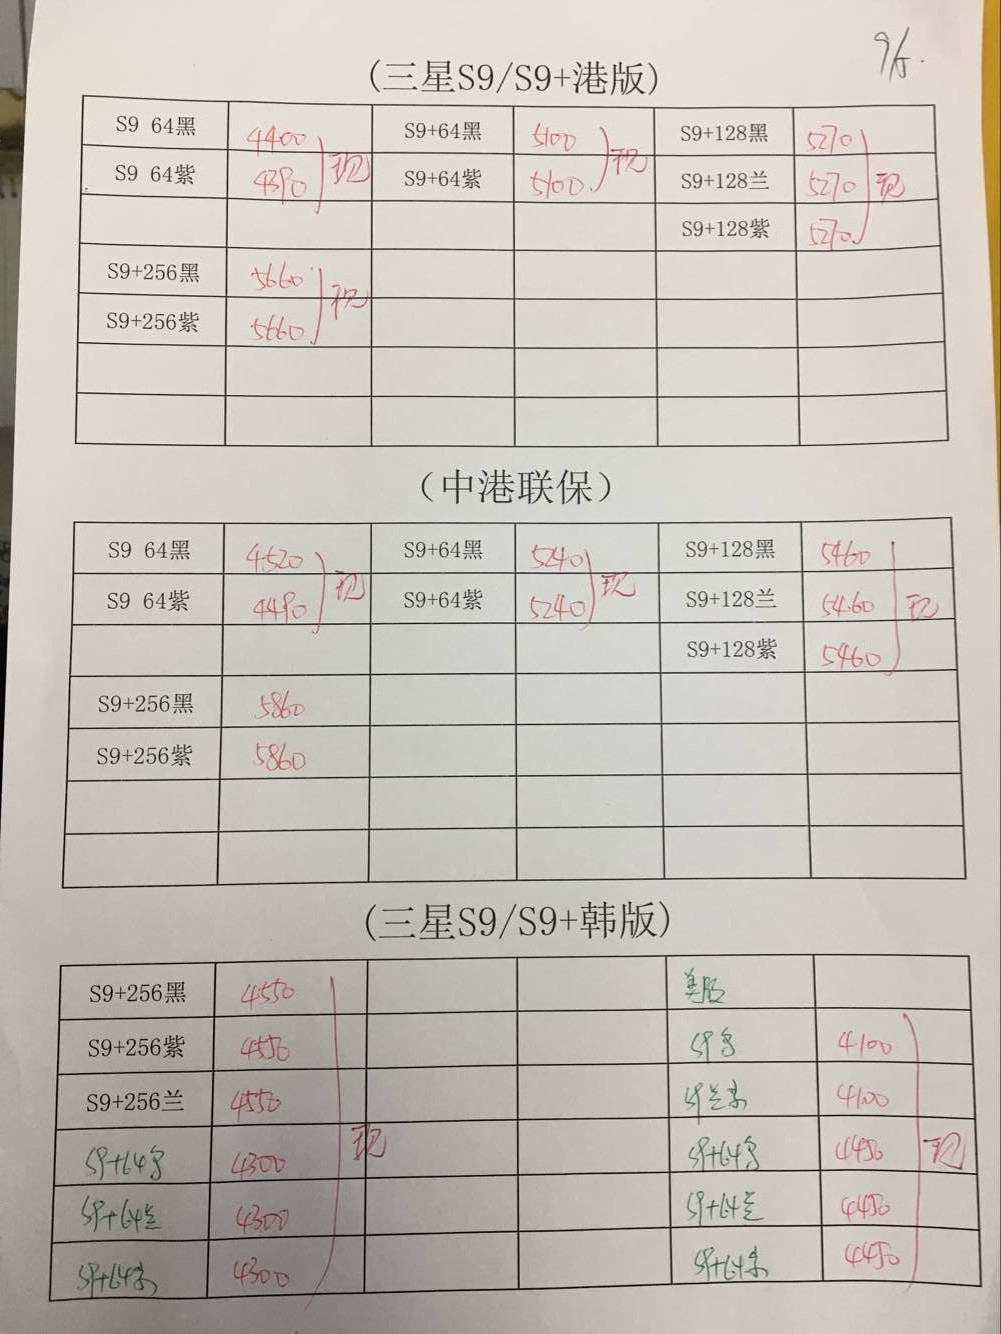 9/5.
(三星S9/S9+港版)
S9 64黑 4400 S9+64黑 5100 S9+128黑 5270
现 现
S9 64紫 4390 S9+64紫 5100 S9+128兰 5270 现
S9+128紫 5270
S9+256黑 5660
现
S9+256紫 5660
(中港联保)
S9 64黑 4520 S9+64黑 5240 S9+128黑 5460
现 现
S9 64紫 4490 S9+64紫 5240 S9+128兰 5460 现
S9+128紫 5460
S9+256黑 5860
S9+256紫 5860
(三星S9/S9+韩版)
S9+256黑 4550 美版
S9+256紫 4550 S9黑 4100
S9+256兰 4550 S9兰紫 4100
S9+64黑 4300 现 S9+64黑 4450 现
S9+64兰 4300 S9+64兰 4450
S9+64紫 4300 S9+64紫 4450